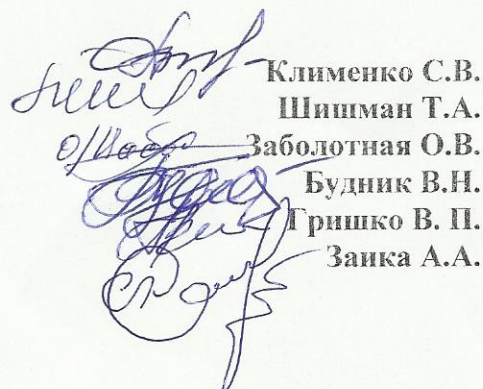 Клименко С.В.
Шишман Т.А.
Заболотная О.В.
Будник В.Н.
Гришко В. П.
Заика А.А.